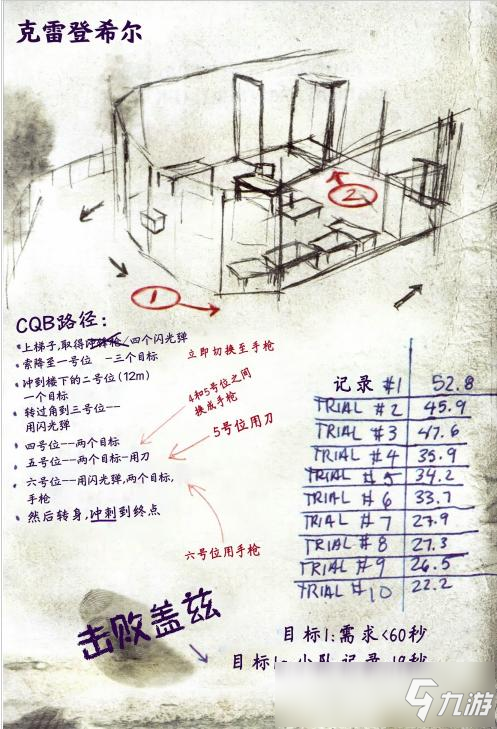 克雷登希尔
2
1
CQB路径:
·上梯子,取得冲锋枪/四个闪光弹
立即切换至手枪
·索降至一号位 -三个目标
·冲到楼下的二号位(12m)
一个目标
·转过角到三号位--
用闪光弹
4和5号位之间
换成手枪
·四号位--两个目标
5号位用刀
·五号位--两个目标-用刀
·六号位--用闪光弹,两个目标,
手枪
·然后转身,冲刺到终点
六号位用手枪
记录 #1 52.8
TRIAL #2 45.9
TRIAL #3 47.6
TRIAL #4 35.9
TRIAL #5 34.2
TRIAL #6 33.7
TRIAL #7 27.9
TRIAL #8 27.3
TRIAL #9 26.5
TRIAL #10 22.2
击败盖兹
目标1:需求<60秒
目标 小队记录 19秒
九游